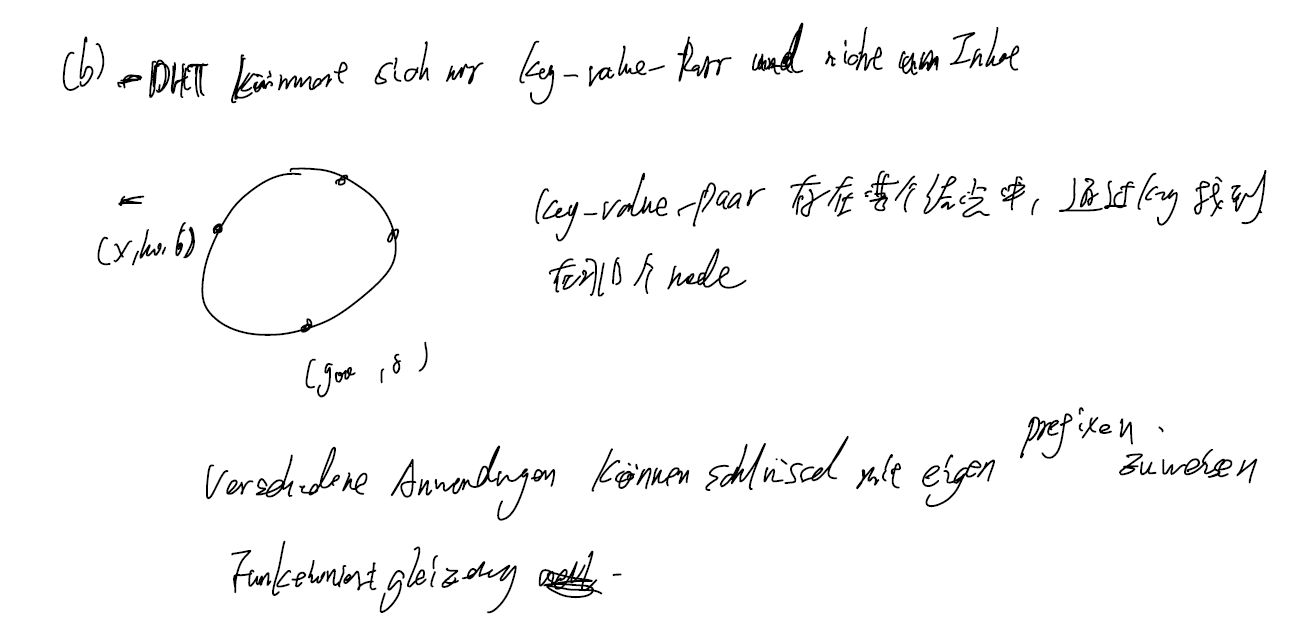 (b) - DHT kümmert sich nur key-value-Paar und nicht um Inhalt
key-value-paar 存在某个结点中, 通过key 找到
(x, 6)
在哪个 node
( , 8)
prefixen.
Verschiedene Anwendungen können schlüssel mit eigen zuweisen
Funktioniert gleizeitig